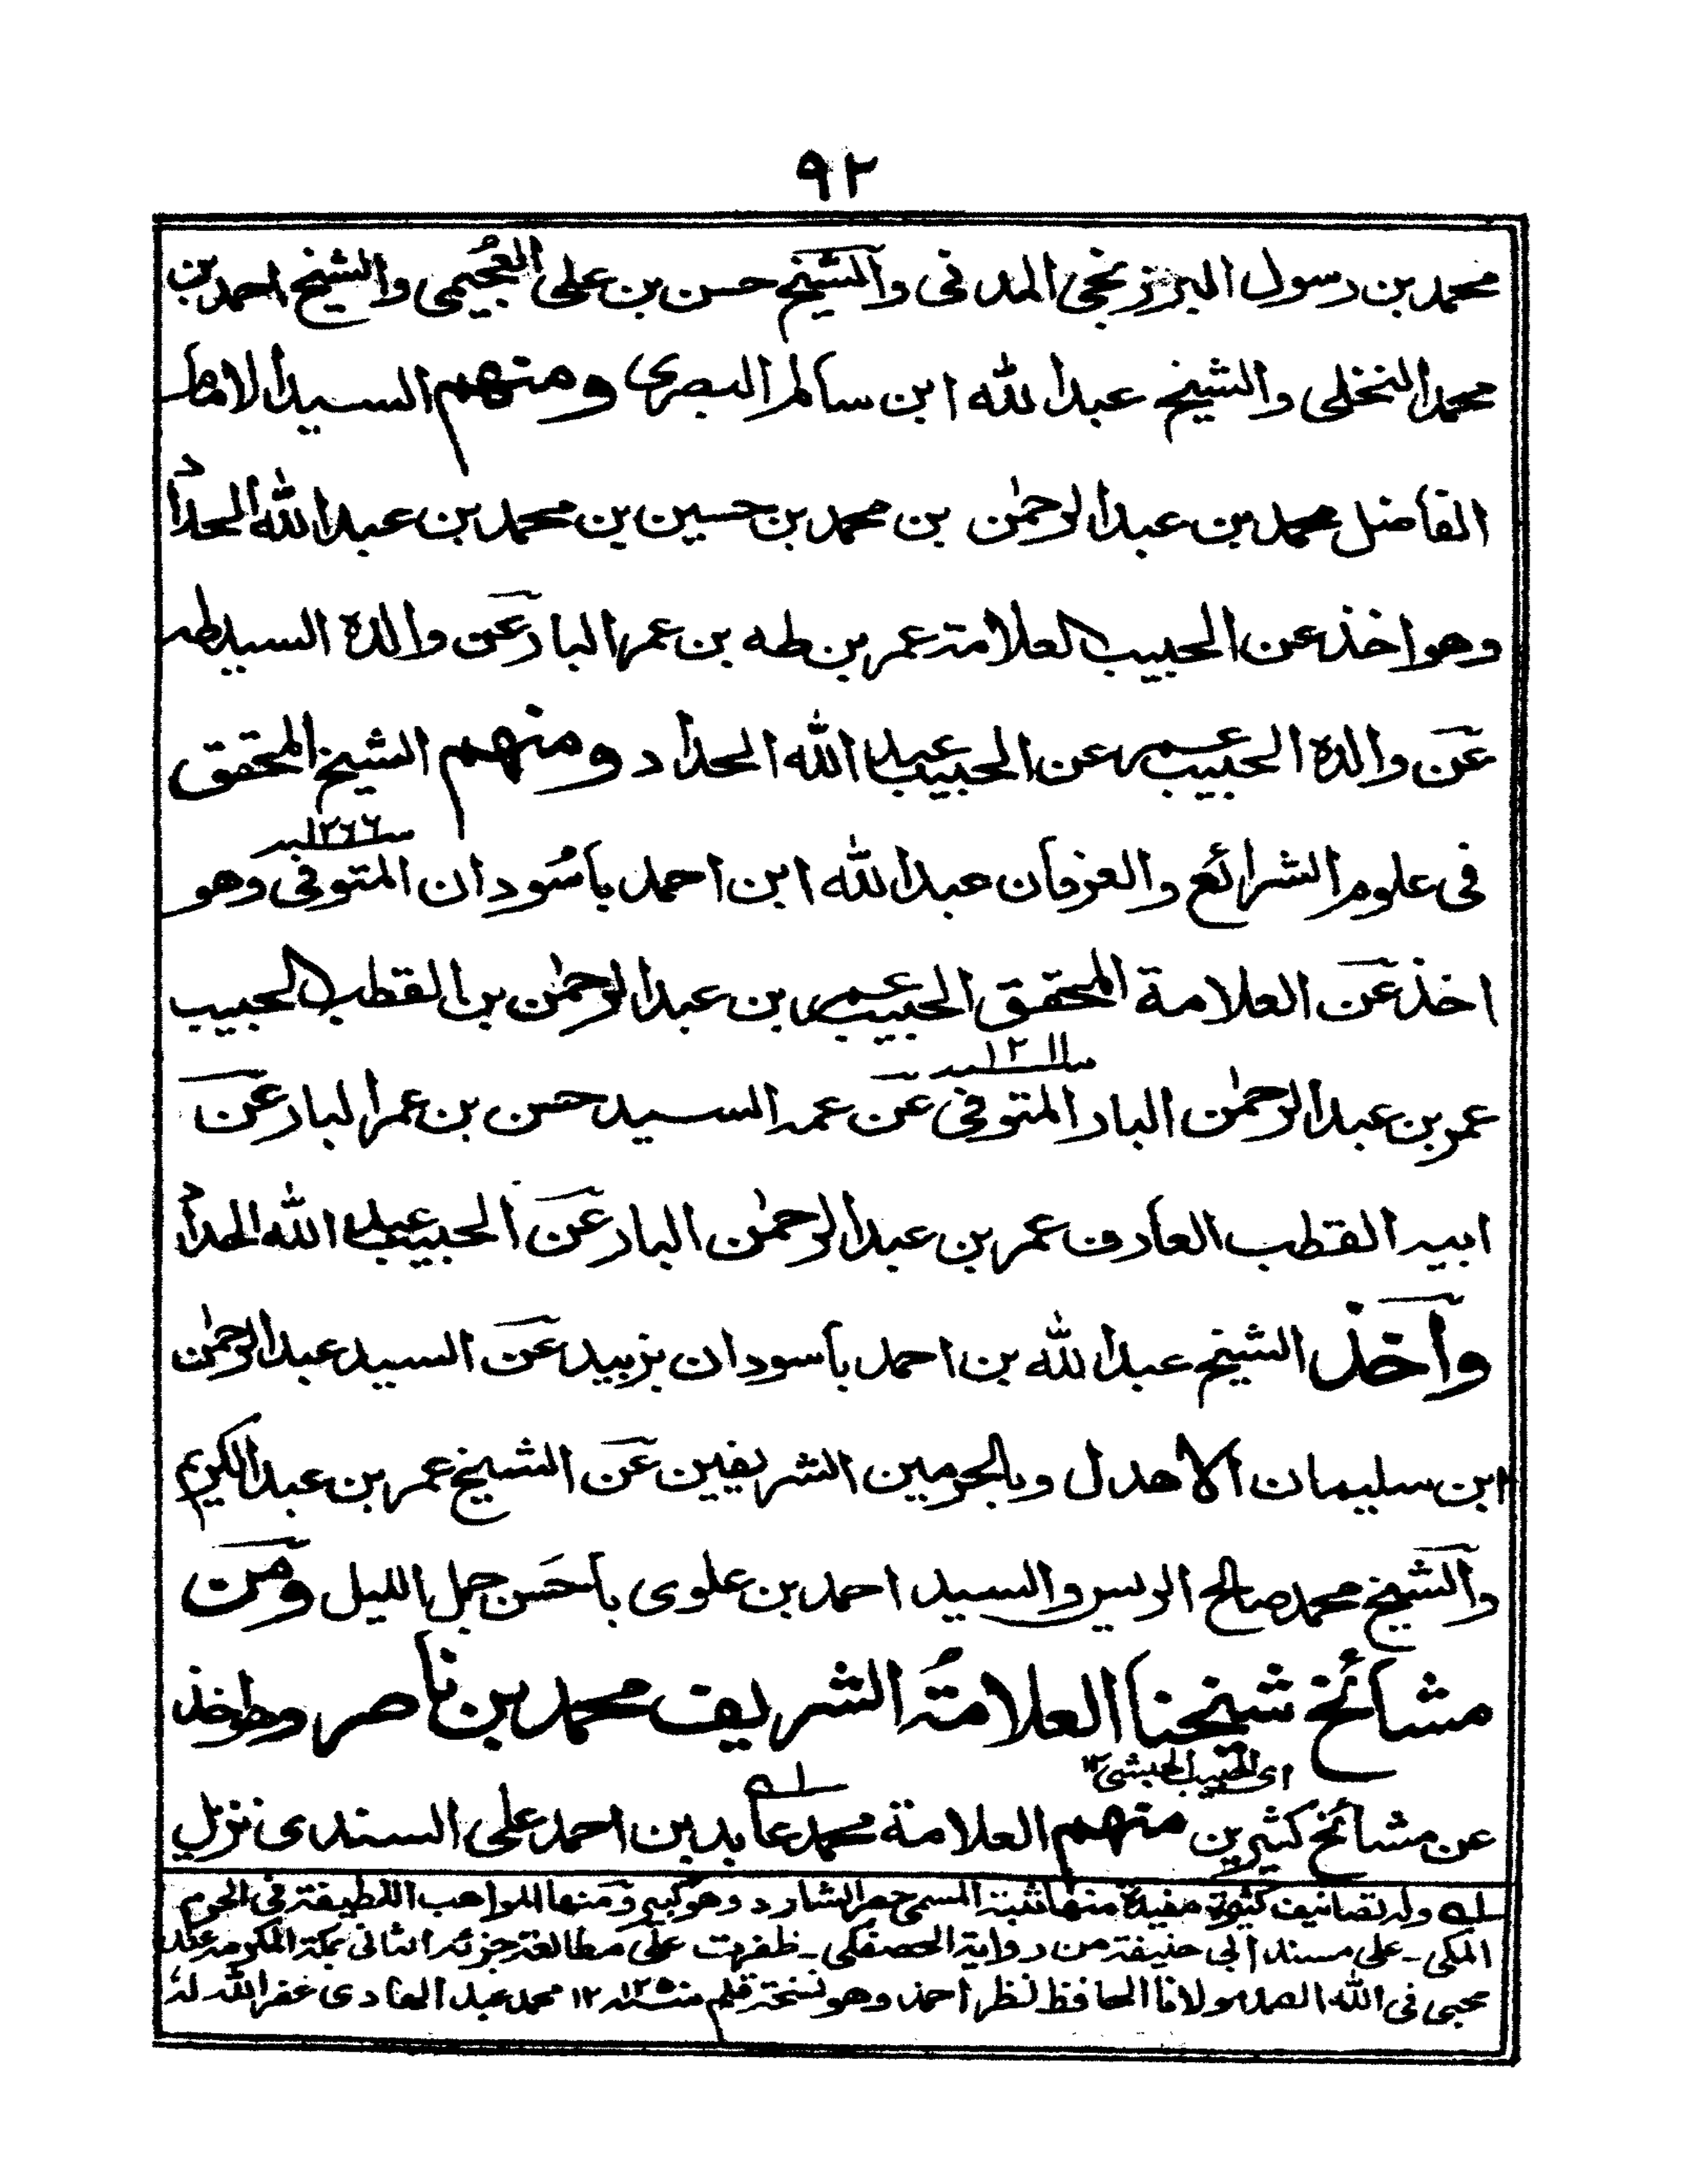 ٩٢
محمد بن رسول البرزنجي المدني والشيخ حسن بن على العُجيمى والشيخ احمد بن
محمد النخلى والشيخ عبد الله ابن سالم البصرى ومنهم السيد الامام
الفاضل محمد بن عبد الرحمٰن بن محمد بن حسين بن محمد بن عبد الله الحداد
وهو اخذ عن الحبيب العلامة عمر بن طه بن عمر البار عن والده السيد طه
عن والده الحبيب عمر عن الحبيب عبد الله الحداد ومنهم الشيخ المحقق
فى علوم الشرائع والعرفان عبد الله ابن احمد باسُودان المتوفى ١٢٦٦ وهو
اخذ عن العلامة المحقق الحبيب عمر بن عبد الرحمٰن بن القطب الحبيب
عمر بن عبد الرحمٰن البار المتوفى ١٢١١ عن عمه السيد حسن بن عمر البار عن
ابيه القطب العارف عمر بن عبد الرحمٰن البار عن الحبيب عبد الله الحداد
واخذ الشيخ عبد الله بن احمد باسودان بزبيد عن السيد عبد الرحمٰن
ابن سليمان الاهدل وبالحرمين الشريفين عن الشيخ عمر بن عبد الكريم
والشيخ محمد صالح الريس والسيد احمد بن علوى باحَسن جمل الليل ومن
مشائخ شيخنا العلامة الشريف محمد بن ناصر وهو اخذ
اى الحبيب الحبشى ١٢
عن مشائخ كثيرين منهم العلامة محمد عابد بن احمد على السندى نزيل
له وله تصانيف كثيرة مفيدة منها ثبته المسمى حصر الشارد وهو كبير ومنها المواهب اللطيفة فى الحرم
المكى ـ على مسند ابى حنيفة من رواية الحصفكى ـ ظفرت على مطالعة جزئه الثانى بمكة المكرمة عند
محبى فى الله الصمد مولانا الحافظ نظر احمد وهو نسخة قلم ١٢ محمد عبد الهادى غفر الله لهٗ